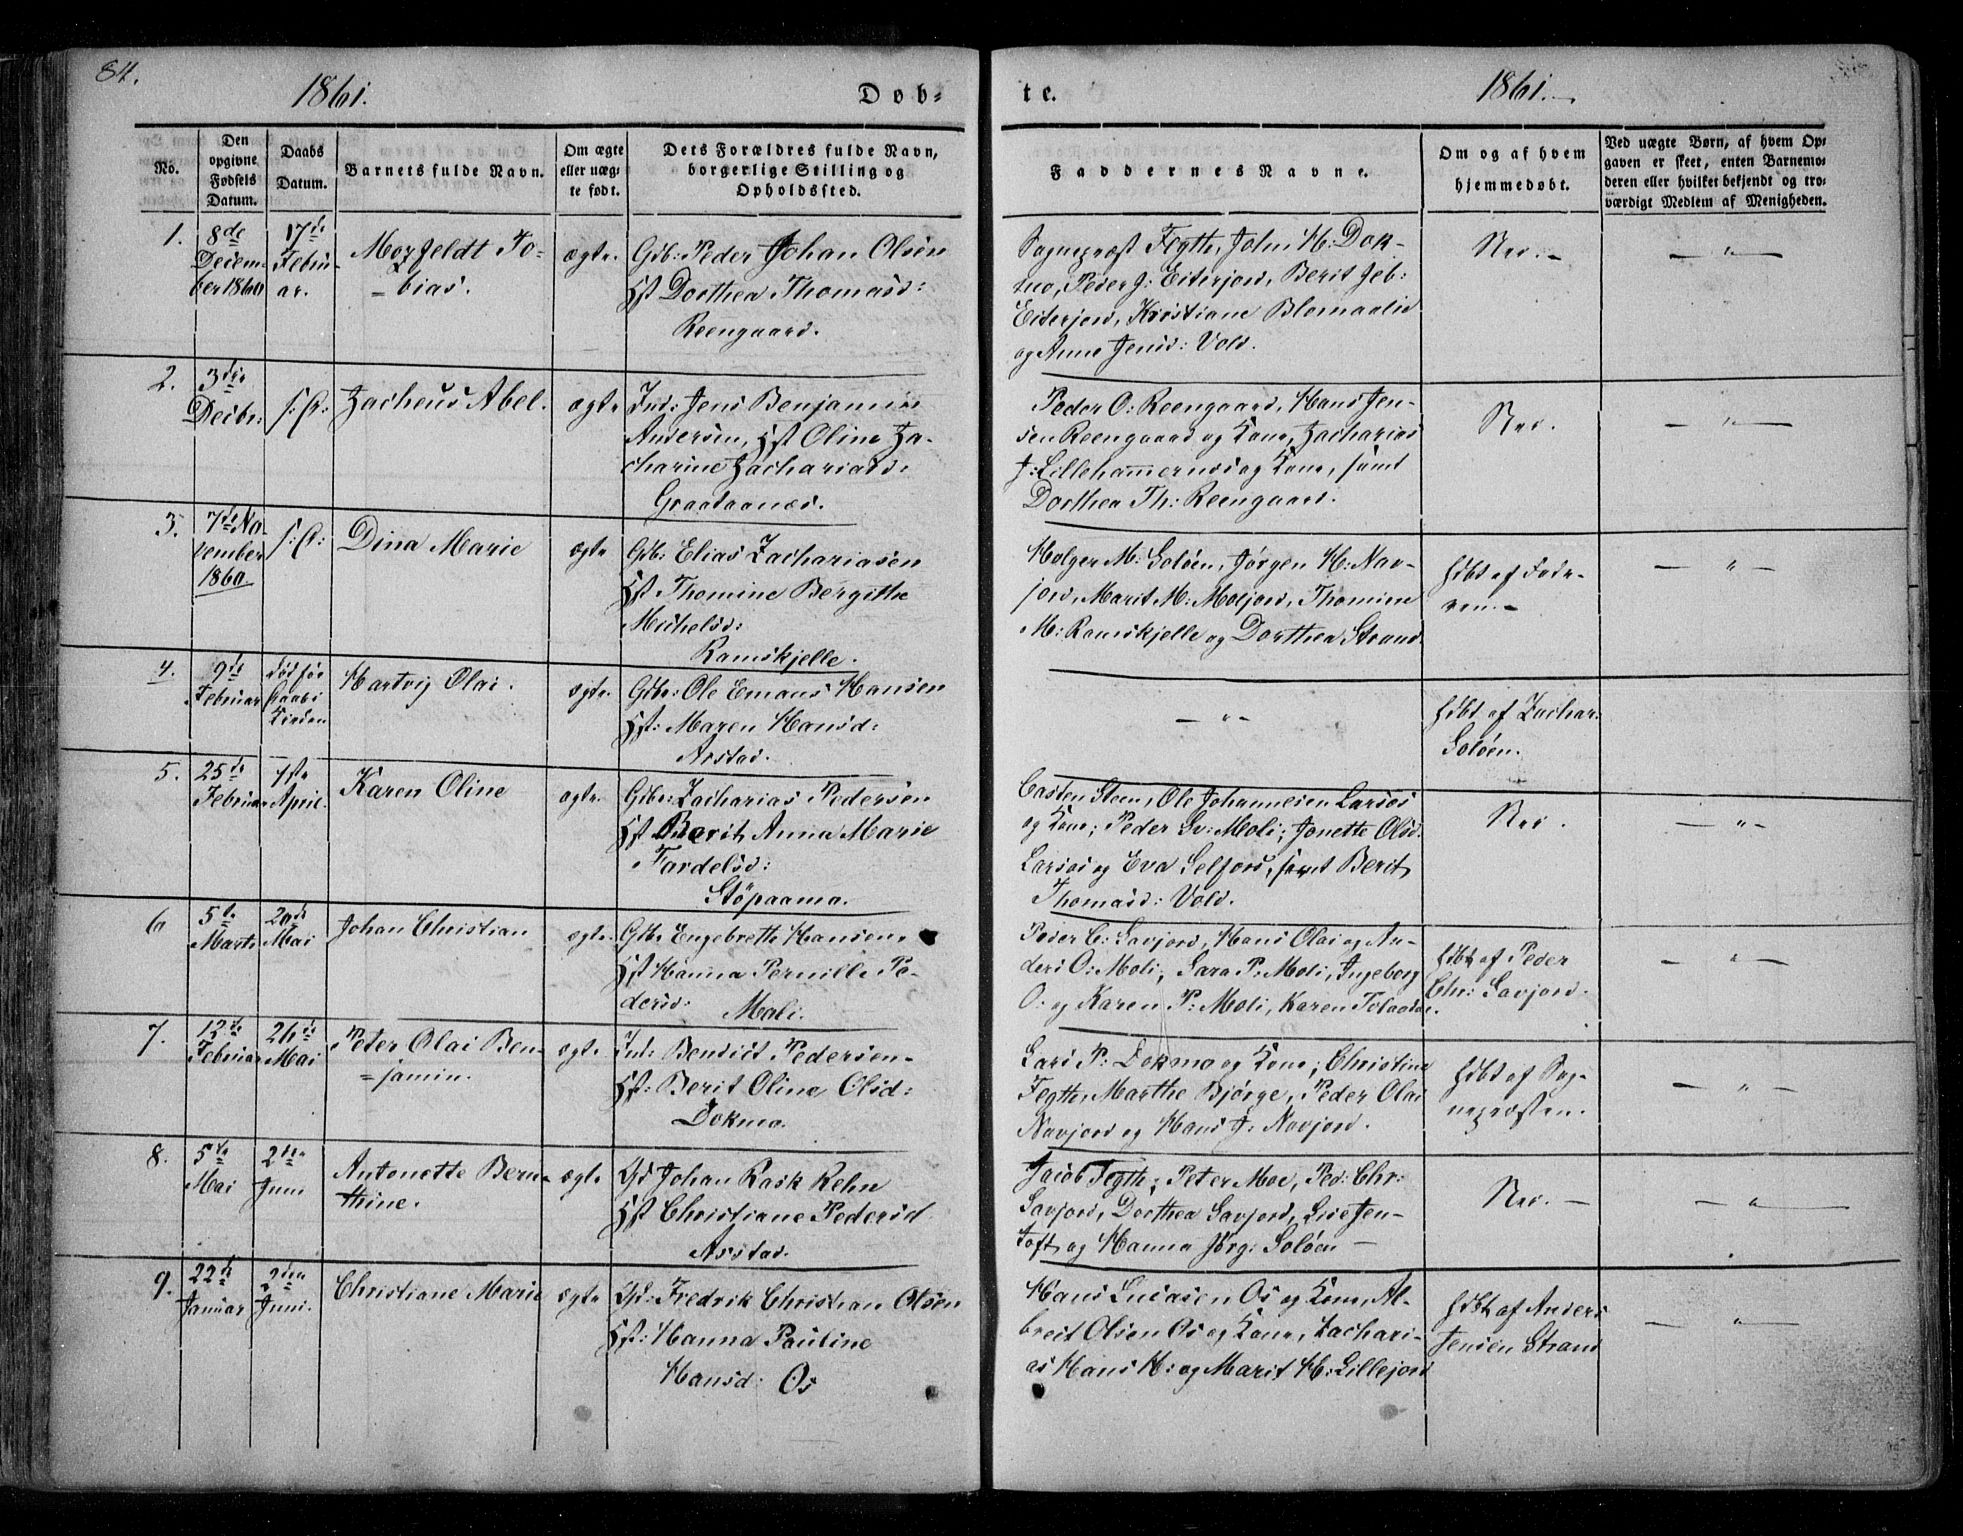 84.
1861.
Døb-
te.
1861.
No.
Den
opgivne
Fødsels
Datum.
Daabs
Datum.
Barnets fulde Navn.
Om ægte
eller uæg-
te født.
Dets Forældres fulde Navn,
borgerlige Stilling og
Opholdssted.
Faddernes Navne.
Om og af hvem
hjemmedøbt.
Ved uægte Børn, af hvem Op-
gaven er skeet, enten Barnemo-
deren eller hvilket bekjendt og tro-
værdigt Medlem af Menigheden.
1.
8de
Decem-
ber 1860
17de
Febru-
ar.
Morzfeldt To-
=bias.
ægte
Gdb: Peder Johan Olsen
Hst Dorthea Thomasd:
Reengaard.
Sognepræst Fegth, John H: Dok-
mo, Peder J: Eiterjord, Berit Jeb:
Eiterjord, Kristiane Blomaalid
og Anne Jensd: Vold.
Nei.
2.
3die
Decbr:
s: C:
Zacheus Abel.
ægte
Ind: Jens Benjamin
Andersen, Hst Oline Za-
charine Zachariasd:
Graadaanes.
Peder O: Reengaard, Hans Jen-
sen Reengaard og Kone, Zacharias
J: Lillehammernes og Kone, samt
Dorthea Th: Reengaard.
Nei.
3.
7de No-
vember
1860
s: C:
Dina Marie
ægte
Gdb: Elias Zachariasen
Hst Thomine Bergithe
Michelsd:
Ramskjelle.
Holger M: Soløen, Jørgen H: Nav-
jord, Marit M: Moljord, Thomine
M: Ramskjelle og Dorthea Strand
Hdbt af Fade-
ren.
4.
9de
Februar
død før
Daabs
Hartvig Olai.
ægte
Gdbr: Ole Emans Hansen
Hst: Maren Hansd:
Arstad.
Hdbt af Zachar.
Soløen.
5.
25de
Februar
1ste
April.
Karen Oline
ægte.
Gdbr: Zacharias Pedersen
Hst Berit Anna Marie
Fardelsd:
Stöpaamo.
Casten Steen, Ole Johannesen Larsos
og Kone; Peder Sv: Moli; Jonette Olsd.
Larsos og Eva Selfors, samt Berit
Thomasd: Vold.
Nei.
6
5te
Marts
20de
Mai
Johan Christian
ægte.
Gdbr Engebreth Hansen.
Hst Hanna Pernille Pe-
dersd:
Moli.
Peder C: Savjord, Hans Olai og An-
ders O: Moli, Sara P: Moli, Ingeborg
O: og Karen P: Moli, Karen Tolaadne.
Hdbt af Peder
Chr: Savjord.
7.
12te
Februar
26de
Mai
Peter Olai Ben-
=jamin.
ægte
Ind: Bendict Pedersen
Hst: Berit Oline Olsd:
Dokmo.
Lars P: Dokmo og Kone; Christine
Fegth, Marthe Bjørge, Peder Olai
Navjord og Hans J: Navjord.
Hdbt af Sog-
nepræsten.
8.
5te
Mai
2den
Juni
Antonette Bern-
thine.
ægte
Gd Johan Rask Rehn
Hst Christiane Pedersd
Arstad.
Jacob Fegth; Peter Moe, Ped: Chr:
Savjord, Dorthea Savjord, Lise Jen-
Toft og Hanna Jörg: Soløen
Nei.
9.
22de
Januar
2den
Juni.
Christiane Marie
ægte
Gd: Fredrik Christian Olsen
Hst: Hanna Pauline
Hansd: Os
Hans Lucasen Os og Kone, Al-
breit Olsen Os og Kone, Zachari-
as Hans H: og Marit H: Lillejord
Hdbt af Anders
Jensen Strand